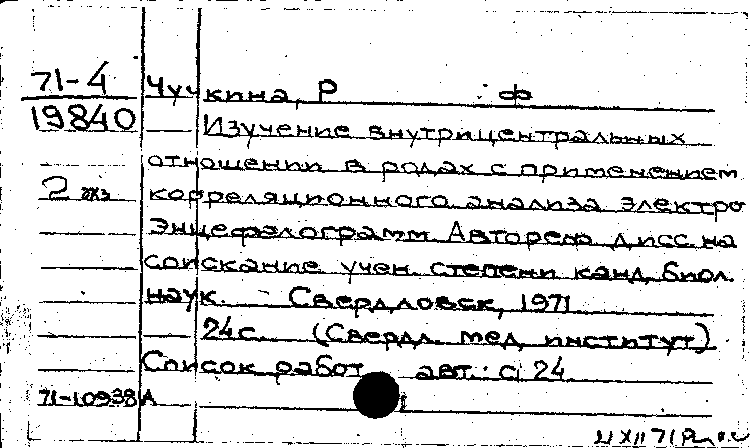 71-4
19840
Чучкина, Р Ф
Изучение внутрицентральных
отношении в родах с применением
2 экз корреляционного анализа электро
энцефалограмм Автореф дисс на
соискание учен. степени канд. биол.
наук. - Свердловск, 1971
24с. (Свердл. мед. институт)
Список работ авт.: с 24
71-10938А
21 XII 71